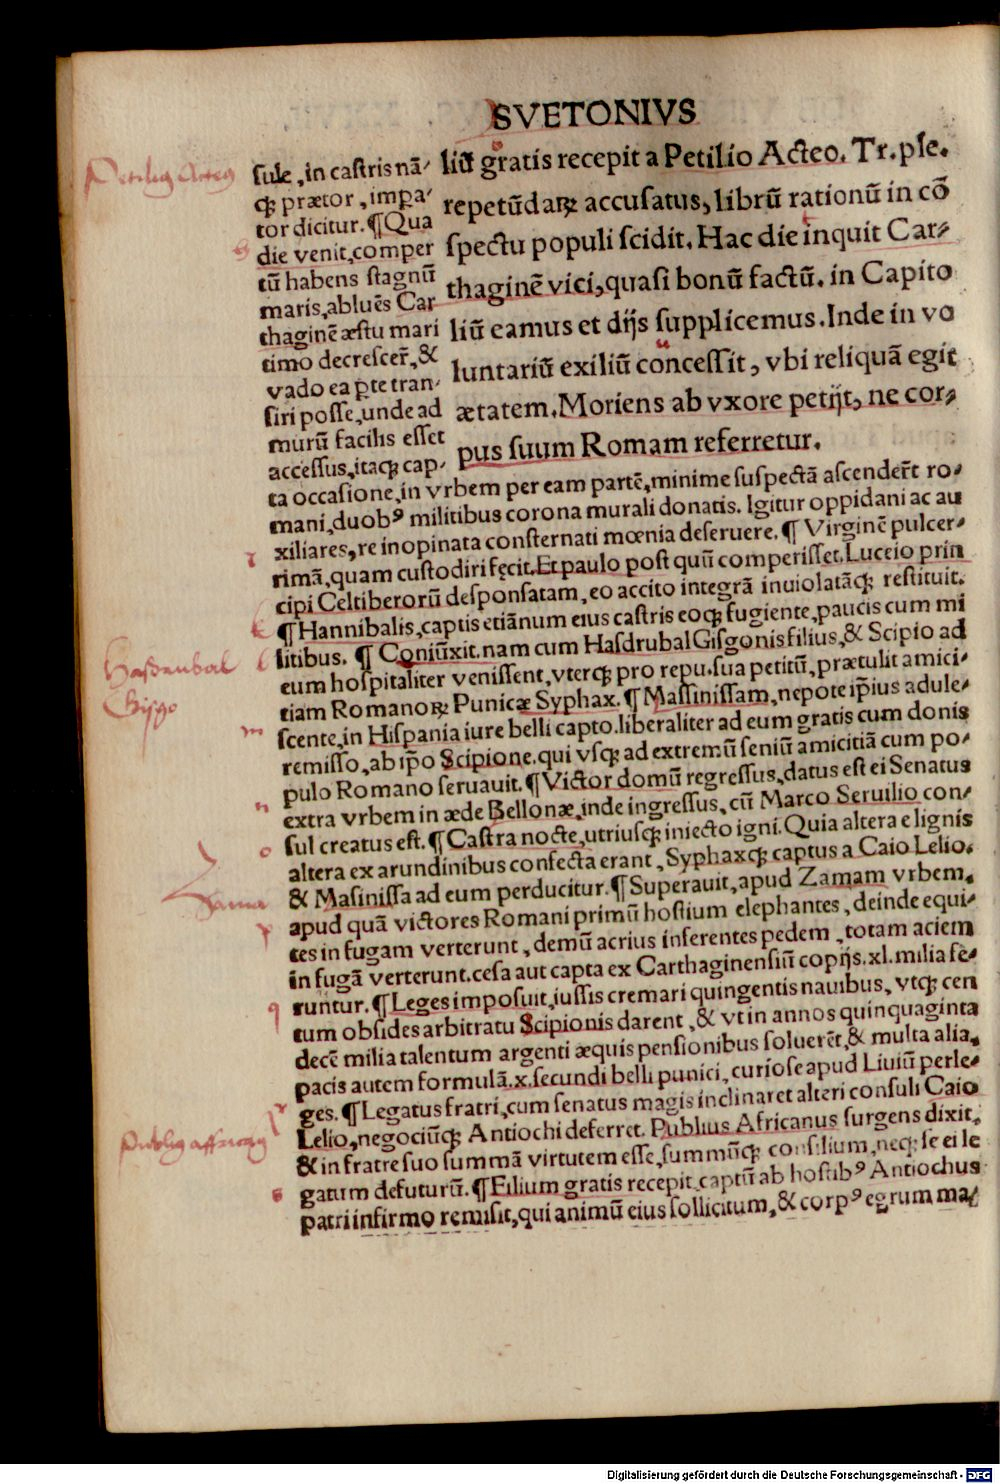 SVETONIVS
liū gratis recepit a Petilio Acteo. Tr. ple.
repetūdaꝝ accusatus, librū rationū in cō
spectu populi scidit. Hac die inquit Car-
thaginē vici, quasi bonū factū. in Capito
liū eamus et dijs supplicemus. Inde in vo
luntariū exiliū concessit, vbi reliquā egit
ætatem. Moriens ab vxore petijt, ne cor-
pus suum Romam referretur.
sule, in castris nā-
cꝫ prætor, impa-
tor dicitur. ¶ Qua
die venit, comper
tū habens stagnū
maris, abluēs Car
thaginē æstu mari
timo decrescer̄, &
vado ea ꝑte tran-
siri posse, unde ad
murū facilis esset
accessus, itaqꝫ cap-
ta occasione, in vrbem per eam partē, minime suspectā ascender̄t ro-
mani, duobꝰ militibus corona murali donatis. Igitur oppidani ac au
xiliares, re inopinata consternati mœnia deseruere. ¶ Virginē pulcer-
rimā, quam custodiri fęcit. Et paulo post quū comperisset. Luceio prin
cipi Celtiberorū desponsatam, eo accito integrā inuiolatāqꝫ restituit.
¶ Hannibalis, captis etiānum eius castris eoqꝫ fugiente, paucis cum mi
litibus. ¶ Coniūxit. nam cum Hasdrubal Gisgonis filius, & Scipio ad
eum hospitaliter venissent, vterqꝫ pro repu. sua petitū, prætulit amici-
tiam Romanoꝝ Punicæ Syphax. ¶ Massinissam, nepote ip̄ius adule-
scente, in Hispania iure belli capto. liberaliter ad eum gratis cum donis
remisso, ab ip̄o Scipione. qui vsqꝫ ad extremū seniū amicitiā cum po-
pulo Romano seruauit. ¶ Victor domū regressus, datus est ei Senatus
extra vrbem in æde Bellonæ, inde ingressus, cū Marco Seruilio con-
sul creatus est. ¶ Castra nocte, utriusqꝫ iniecto igni. Quia altera e lignis
altera ex arundinibus confecta erant, Syphaxqꝫ captus a Caio Lelio.
& Masinissa ad eum perducitur. ¶ Superauit, apud Zamam vrbem.
apud quā victores Romani primū hostium elephantes, deinde equi-
tes in fugam verterunt, demū acrius inferentes pedem, totam aciem
in fugā verterunt. cesa aut capta ex Carthaginensiū copijs. xl. milia fe-
runtur. ¶ Leges imposuit, iussis cremari quingentis nauibus, vtqꝫ cen
tum obsides arbitratu Scipionis darent, & vt in annos quinquaginta
decē milia talentum argenti æquis pensionibus soluerēt, & multa alia.
pacis autem formulā. x. secundi belli punici, curiose apud Liuiū perle-
ges. ¶ Legatus fratri, cum senatus magis inclinaret alteri consuli Caio
Lelio, negociūqꝫ Antiochi deferret. Publius Africanus surgens dixit,
& in fratre suo summā virtutem esse, summūqꝫ consilium, neqꝫ se ei le
gatum defuturū. ¶ Filium gratis recepit captū ab hostibꝰ Antiochus
patri infirmo remisit, qui animū eius sollicitum, & corpꝰ egrum ma-
Petiliꝰ Acteꝰ
h
i
k
Hasdrubal
Gisgo
l
m
n
o
Zama
p
q
r
s
Digitalisierung gefördert durch die Deutsche Forschungsgemeinschaft - DFG